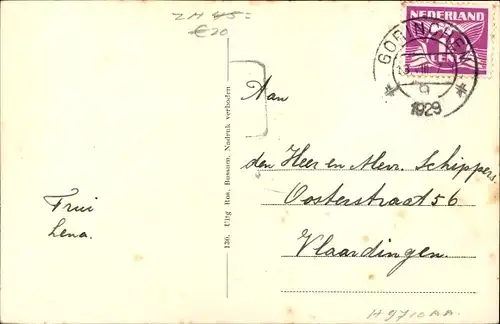 ZH 45=
€20
NEDERLAND
CENT
GORINCHEM
1929
Aan
den Heer en Mevr. Schippers
Oosterstraat 56
Vlaardingen.
Lena.
130. Uitg Ros, Bussum, Nadruk verboden
H9710AA